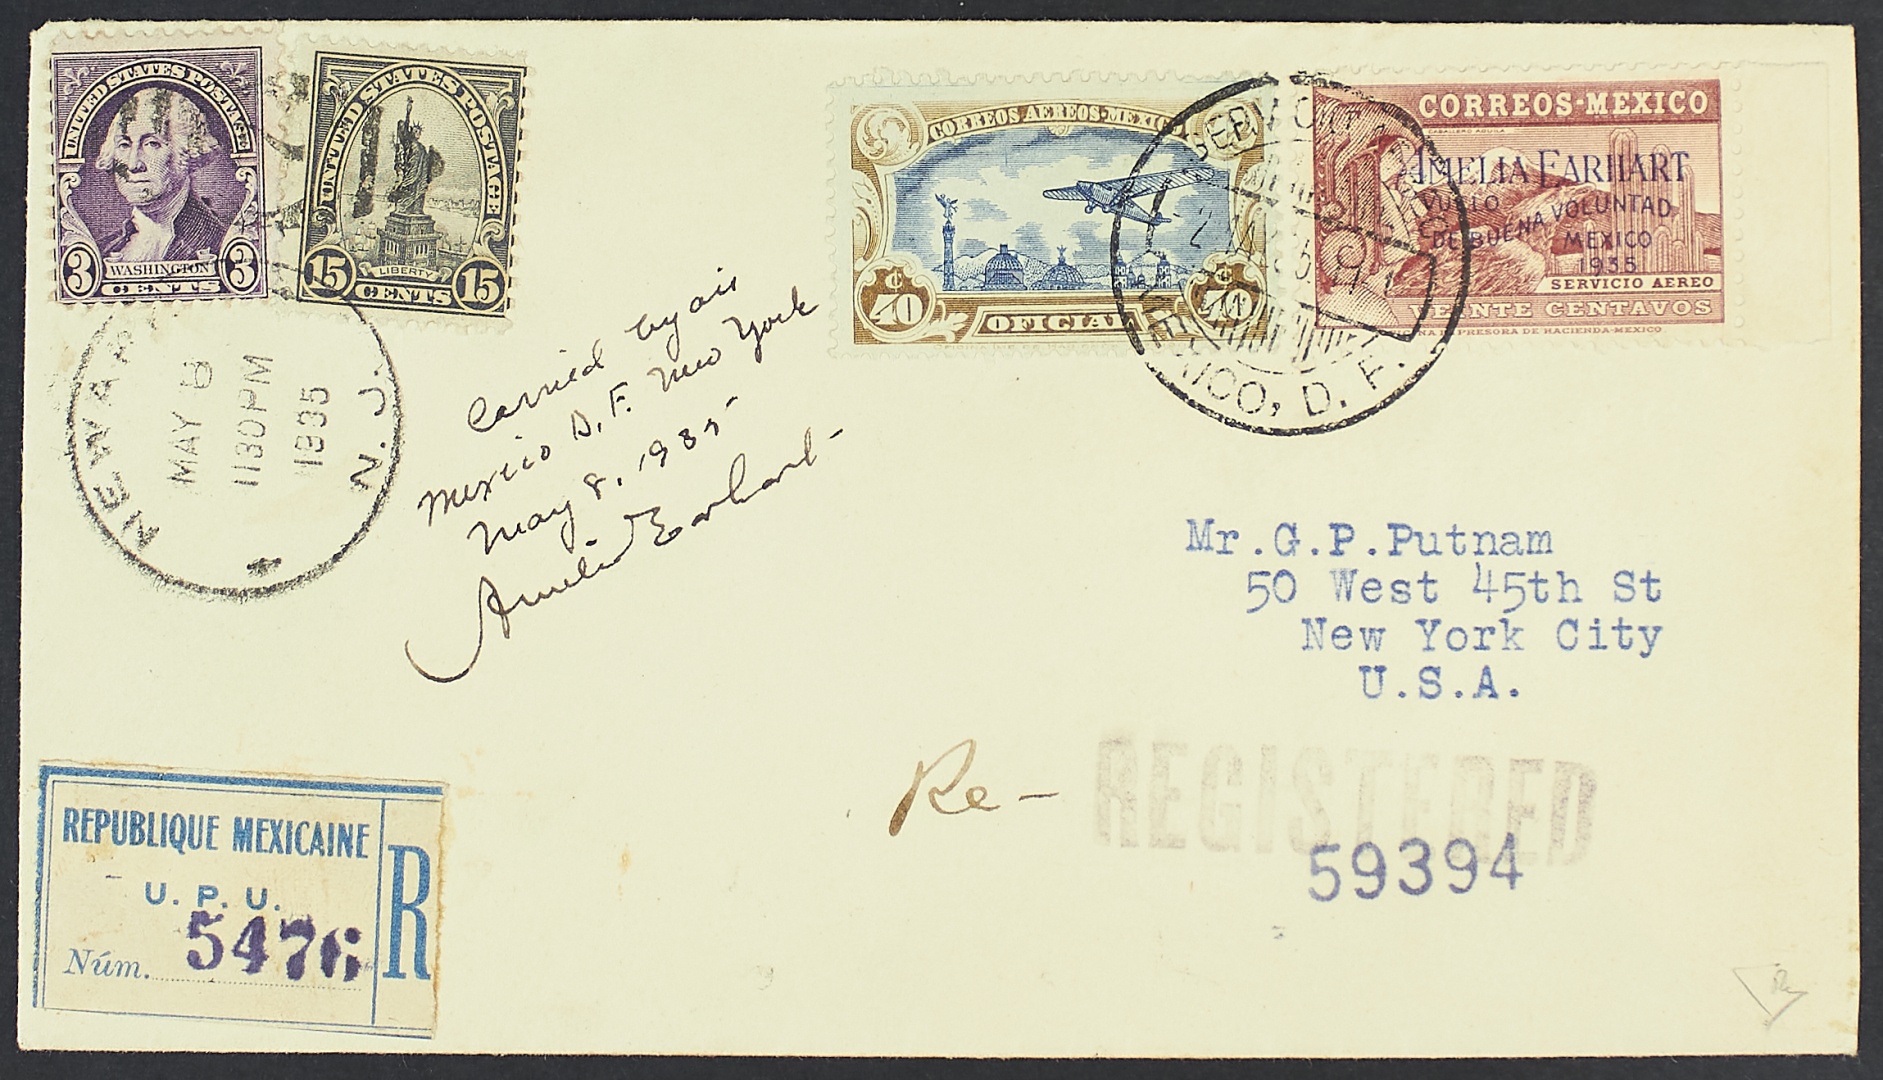 UNITED STATES POSTAGE
3 WASHINGTON 3
CENTS
UNITED STATES POSTAGE
LIBERTY
15 CENTS 15
CORREOS AEREOS-MEXICO
¢ ¢
40 40
OFICIAL
CORREOS-MEXICO
CABALLERO AGUILA
AMELIA EARHART
VUELO
DE BUENA VOLUNTAD
MEXICO
1935
SERVICIO AEREO
VEINTE CENTAVOS
IMPRESORA DE HACIENDA-MEXICO
MEXICO, D. F.
NEWARK N. J.
MAY 8
1130PM
1935
Carried by air
Mexico D.F. New York
May 8, 1935-
Amelia Earhart-
Mr.G.P.Putnam
50 West 45th St
New York City
U.S.A.
Re- REGISTERED
59394
REPUBLIQUE MEXICAINE
U. P. U.
Núm. 5476
R